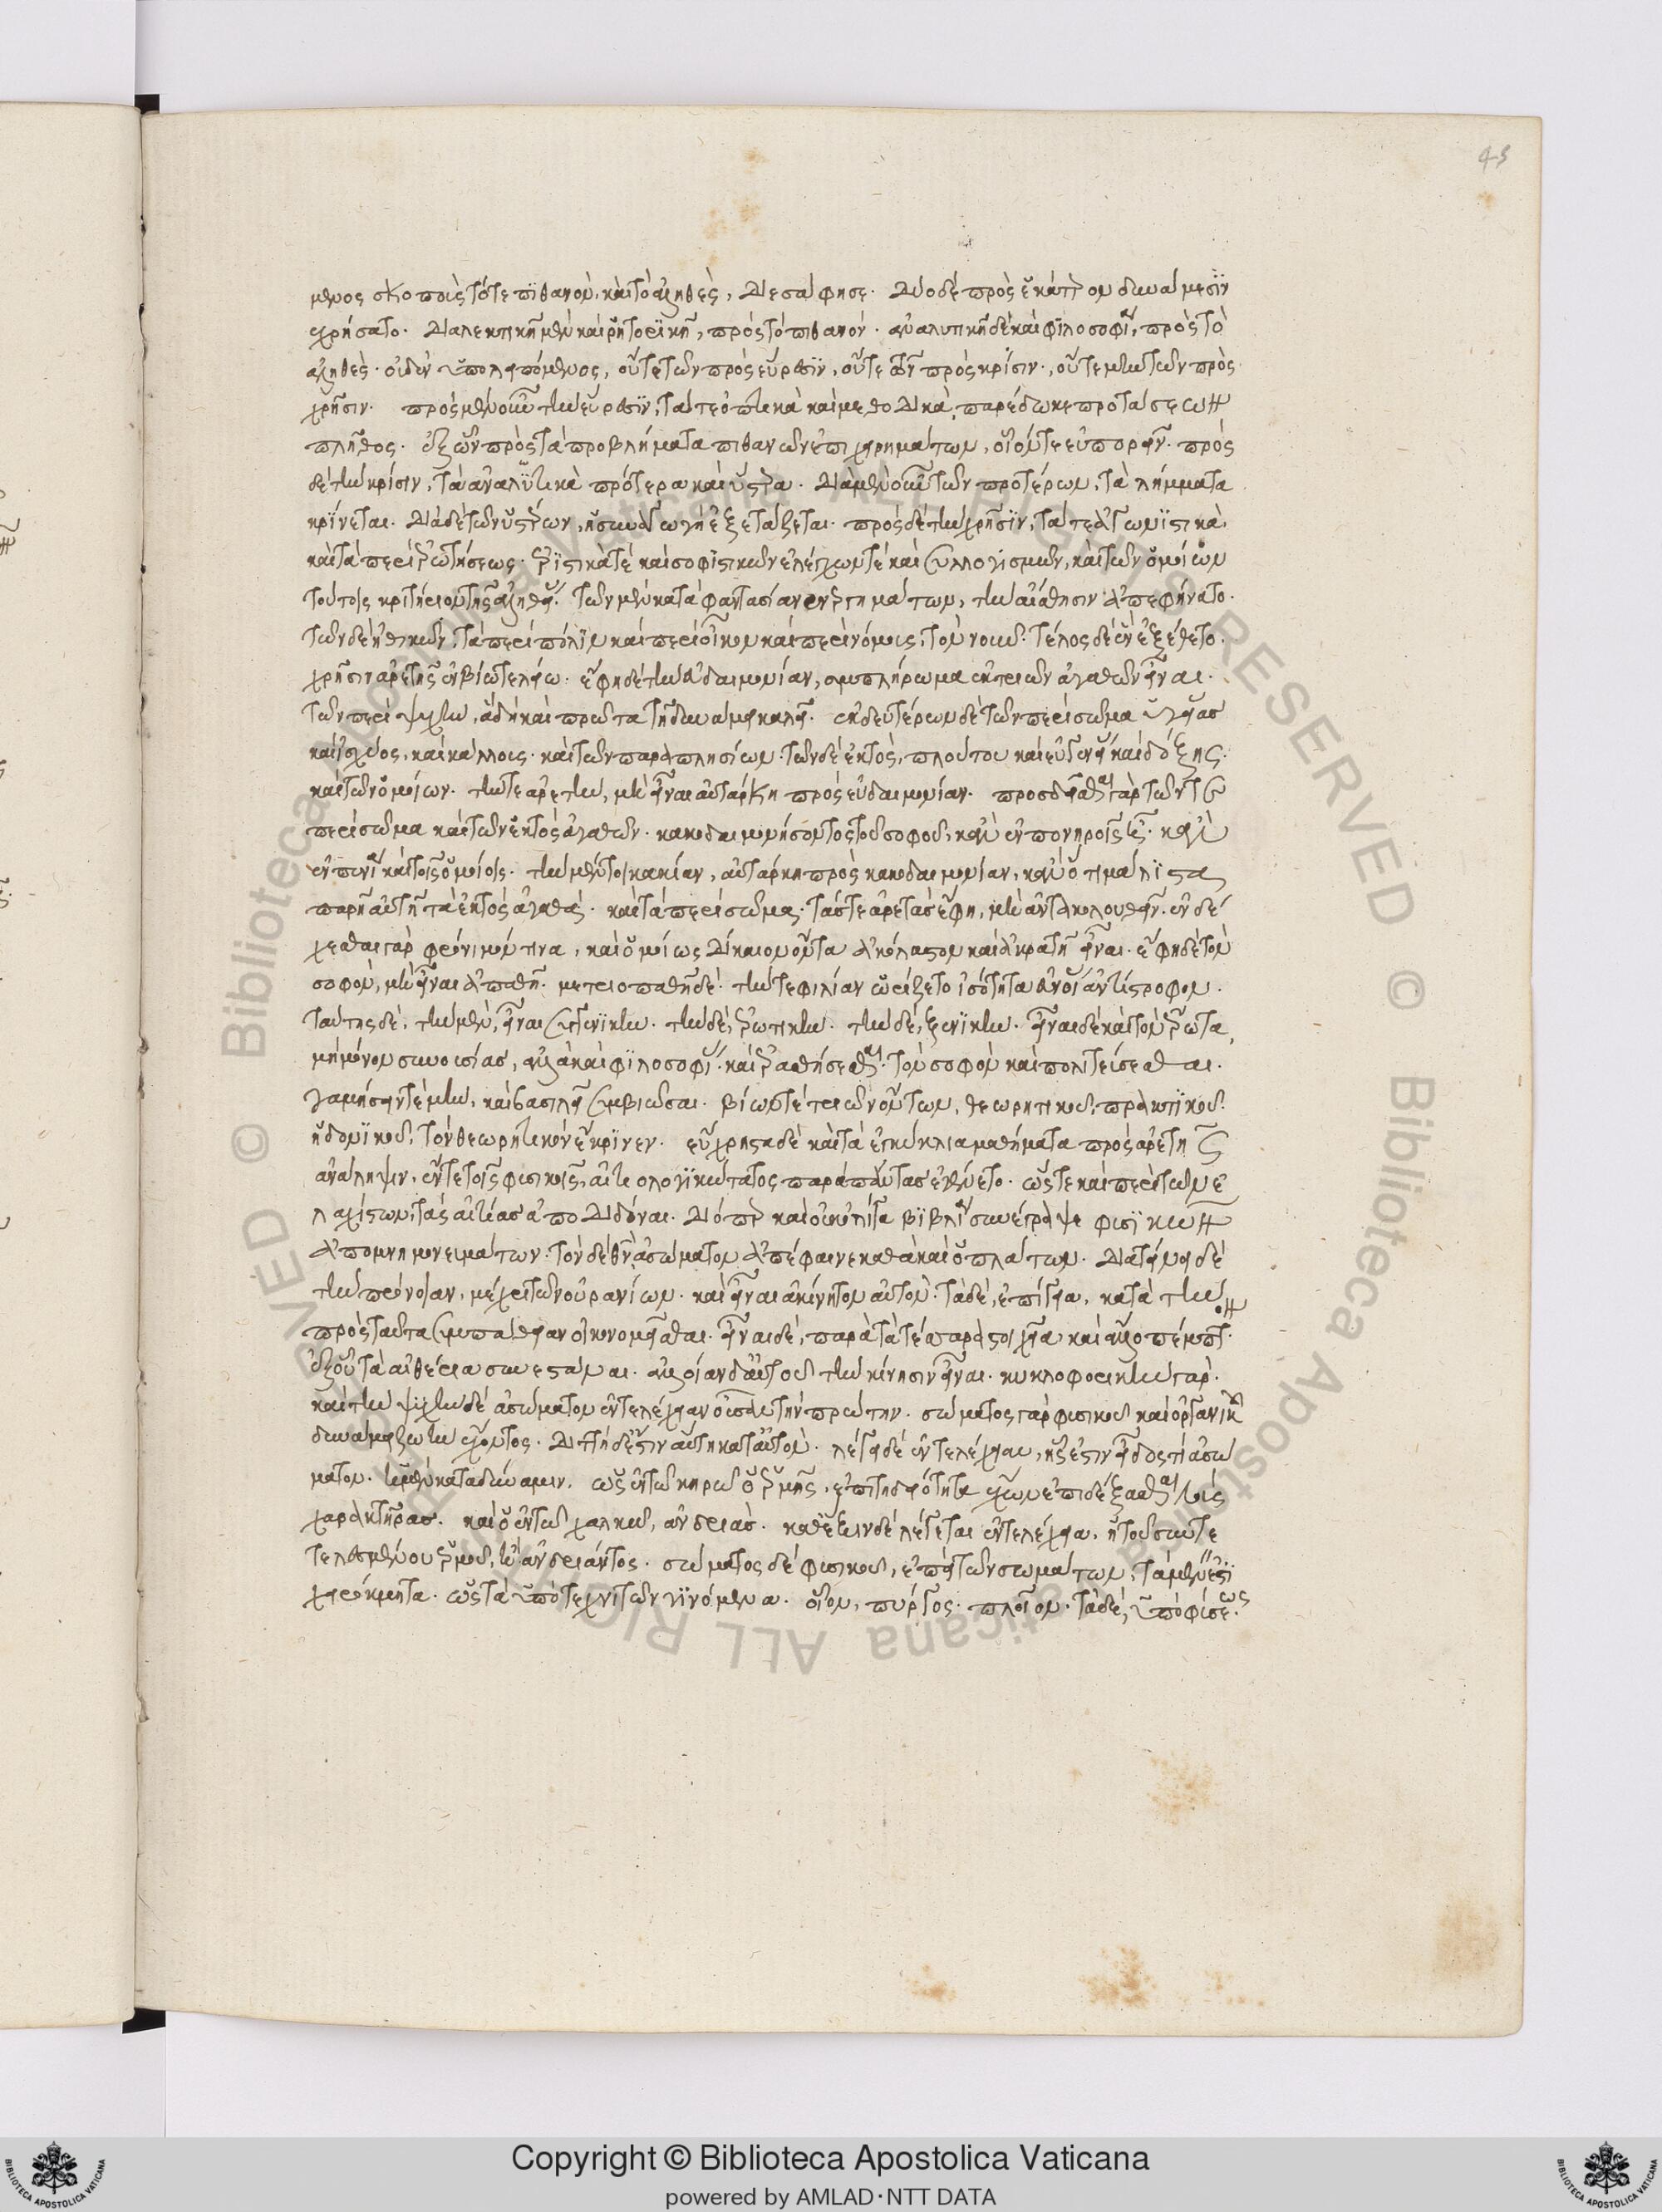 43
μενος σκοποὺς τό τε πιθανὸν, καὶ τὸ ἀληθὲς, διεσάφησε. δύο δὲ πρὸς ἑκάτερον δυνάμεσιν
ἐχρήσατο. διαλεκτικῇ μὲν καὶ ῥητορικῇ, πρὸς τὸ πιθανόν. ἀναλυτικῇ δὲ καὶ φιλοσοφίᾳ, πρὸς τὸ
ἀληθές. οὐδὲν ὑπολειπόμενος, οὔτε τῶν πρὸς εὕρεσιν, οὔτε τῶν πρὸς κρίσιν, οὔτε μὴν τῶν πρὸς
χρῆσιν. πρὸς μὲν οὖν τὴν εὕρεσιν, τά τε τοπικὰ καὶ μεθοδικὰ, παρέδωκε προτάσεων
πλῆθος. ἐξ ὧν πρὸς τὰ προβλήματα πιθανῶν ἐπιχειρημάτων, οἷόν τε εὐπορεῖν. πρὸς
δὲ τὴν κρίσιν, τὰ ἀναλυτικὰ πρότερα καὶ ὕστερα. διὰ μὲν οὖν τῶν προτέρων, τὰ λήμματα
κρίνεται. διὰ δὲ τῶν ὑστέρων, ἡ συναγωγὴ ἐξετάζεται. πρὸς δὲ τὴν χρῆσιν, τά τε ἀγωνιστικὰ
καὶ τὰ περὶ ἐρωτήσεως. ἐριστικά τε καὶ σοφιστικῶν ἐλέγχων τὲ καὶ συλλογισμῶν, καὶ τῶν ὁμοίων
τούτοις κριτήριον τῆς ἀληθείας. τῶν μὲν κατὰ φαντασίαν ἐνεργημάτων, τὴν αἴσθησιν ἀπεφήνατο.
τῶν δὲ ἠθικῶν, τὰ περὶ πόλιν καὶ περὶ οἶκον καὶ περὶ νόμους, τὸν νοῦν. τέλος δὲ ἓν ἐξέθετο.
χρῆσιν ἀρετῆς ἐν βίῳ τελείῳ. ἔφη δὲ τὴν εὐδαιμονίαν, συμπλήρωμα ἐκ τριῶν ἀγαθῶν εἶναι.
τῶν περὶ ψυχὴν, ἃ δὴ καὶ πρῶτα τῇ δυνάμει καλεῖ. ἐκ δευτέρων δὲ τῶν περὶ σῶμα ὑγείας
καὶ ἰσχύος, καὶ κάλλους. καὶ τῶν παραπλησίων. τῶν δὲ ἐκτὸς, πλούτου καὶ εὐγενείας καὶ δόξης.
καὶ τῶν ὁμοίων. τήν τε ἀρετὴν, μὴ εἶναι αὐτάρκη πρὸς εὐδαιμονίαν. προσδεῖσθαι γὰρ τῶν τε
περὶ σῶμα καὶ τῶν ἐκτὸς ἀγαθῶν. κακοδαιμονήσοντος τοῦ σοφοῦ, κἂν ἐν πόνοις ᾖ. κἂν
ἐν πενίᾳ καὶ τοῖς ὁμοίοις. τὴν μέντοι κακίαν, αὐτάρκη πρὸς κακοδαιμονίαν, κἂν ὅτι μάλιστα
παρῇ αὐτῇ τὰ ἐκτὸς ἀγαθὰ. καὶ τὰ περὶ σῶμα. τάς τε ἀρετὰς ἔφη, μὴ ἀντακολουθεῖν. ἐνδέ
χεσθαι γὰρ φρόνιμόν τινα, καὶ ὁμοίως δίκαιον ὄντα ἀκόλαστον καὶ ἀκρατῆ εἶναι. ἔφη δὲ τὸν
σοφὸν, μὴ εἶναι ἀπαθῆ. μετριοπαθῆ δέ. τήν τε φιλίαν ὡρίζετο ἰσότητα εὐνοίας ἀντίστροφον.
ταύτης δὲ, τὴν μὲν, εἶναι συγγενικὴν. τὴν δὲ, ἐρωτικὴν. τὴν δὲ, ξενικὴν. εἶναι δὲ καὶ τὸν ἔρωτα,
μὴ μόνον συνουσίας, ἀλλὰ καὶ φιλοσοφίας. καὶ ἐρασθήσεσθαι τὸν σοφὸν καὶ πολιτεύσεσθαι.
γαμήσειν τὲ μὴν, καὶ βασιλεῖ συμβιῶσαι. βίων τὲ τριῶν ὄντων, θεωρητικοῦ, πρακτικοῦ,
ἡδονικοῦ, τὸν θεωρητικὸν ἔκρινεν. εὔχρηστα δὲ καὶ τὰ ἐγκύκλια μαθήματα πρὸς ἀρετῆς
ἀνάληψιν. ἔν τε τοῖς φυσικοῖς, αἰτιολογικώτατος παρὰ πάντας ἐγένετο. ὥστε καὶ περὶ τῶν ἐ
λαχίστων, τὰς αἰτίας ἀποδιδόναι. διόπερ καὶ οὐκ ὀλίγα βιβλία συνέγραψε φυσικῶν
ἀπομνημονευμάτων. τὸν δὲ θεὸν ἀσώματον ἀπέφαινε καθὰ καὶ ὁ πλάτων. διατείνειν δὲ
τὴν πρόνοιαν, μέχρι τῶν οὐρανίων. καὶ εἶναι ἀκίνητον αὐτόν. τὰ δὲ, ἐπίγεια, κατὰ τὴν
πρὸς ταῦτα συμπάθειαν οἰκονομεῖσθαι. εἶναι δὲ, παρὰ τὰ τέσσαρα στοιχεῖα καὶ ἄλλο πέμπτον.
ἐξ οὗ τὰ αἰθέρια συνεστάναι. ἀλλοίαν δ' αὐτοῦ τὴν κίνησιν εἶναι. κυκλοφορικὴν γάρ.
καὶ τὴν ψυχὴν δὲ ἀσώματον ἐντελέχειαν οὖσαν τὴν πρώτην. σώματος γὰρ φυσικοῦ καὶ ὀργανικοῦ
δυνάμει ζωὴν ἔχοντος. διττὴ δ' ἐστὶν αὕτη κατ' αὐτὸν. λέγει δὲ ἐντελέχειαν, ἧς ἐστιν εἶδός τι ἀσώ
ματον. ἡ μὲν κατὰ δύναμιν. ὡς ἐν τῷ κηρῷ ὁ ἑρμῆς, ἐπιτηδειότητα ἔχων ἐπιδέξασθαι τοὺς
χαρακτῆρας. καὶ ὁ ἐν τῷ χαλκῷ, ἀνδριάς. καθ' ἕξιν δὲ λέγεται ἐντελέχεια, ἡ τοῦ συντε
τελεσμένου ἑρμοῦ, ἢ ἀνδριάντος. σώματος δὲ φυσικοῦ, ἐπεὶ τῶν σωμάτων, τὰ μέν ἐστι
χειρόκμητα. ὡς τὰ ὑπὸ τεχνιτῶν γινόμενα. οἷον, πύργος. πλοῖον. τὰ δὲ, ὑπὸ φύσεως.
Copyright © Biblioteca Apostolica Vaticana
powered by AMLAD·NTT DATA